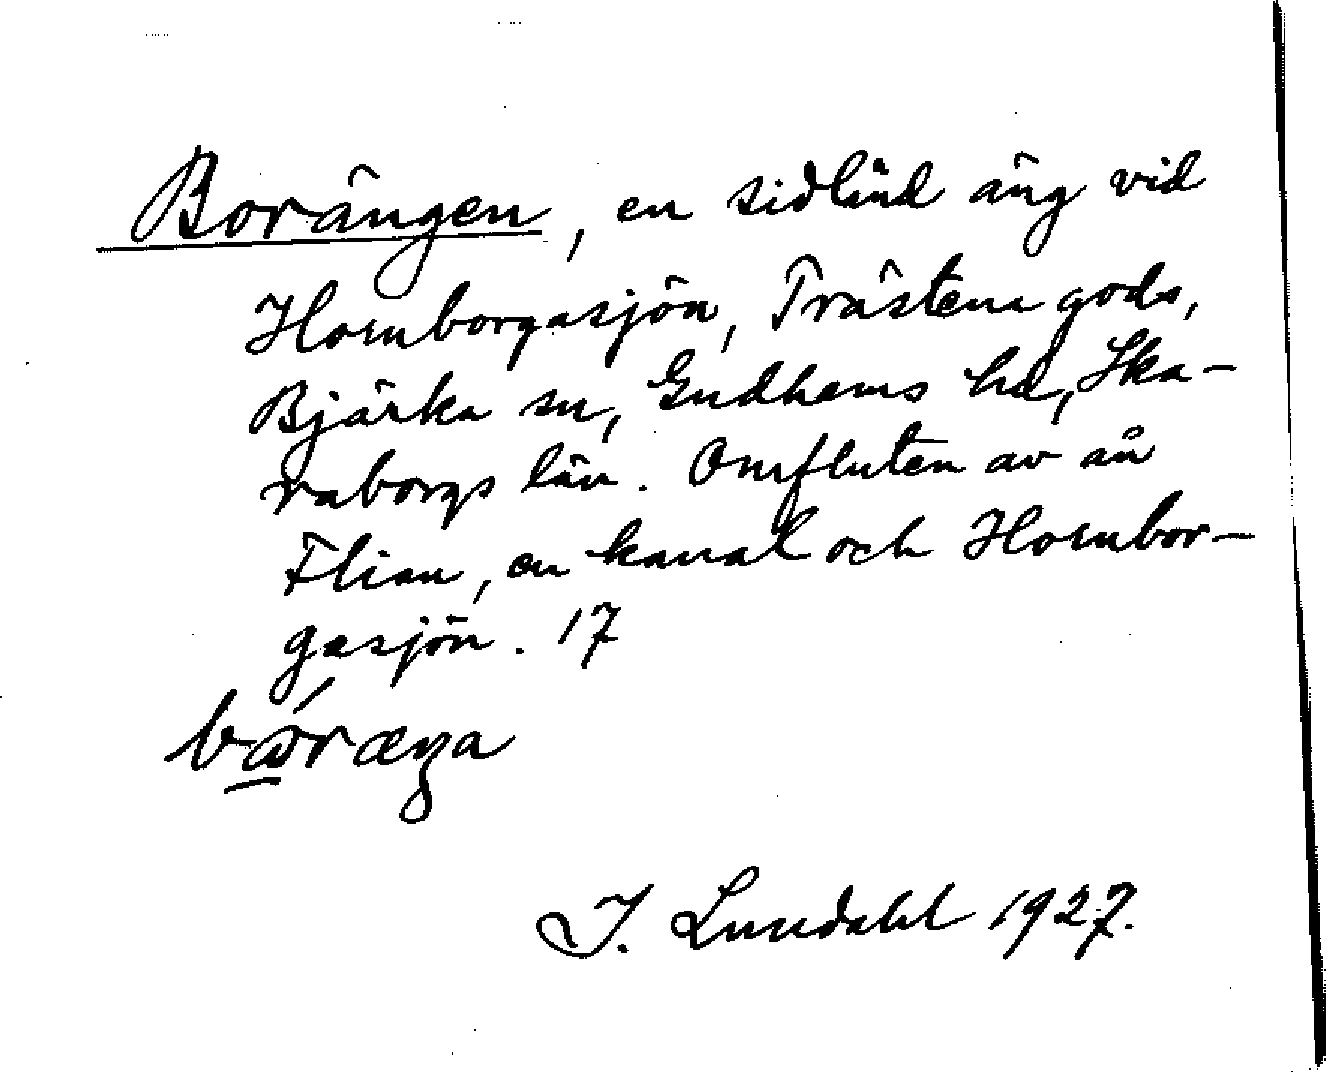 Borängen, en sidländ äng vid
Hornborgasjön, Trästena gods,
Bjärka sn, Gudhems hd, Ska-
raborgs län. Omfluten av ån
Flian, en kanal och Hornbor-
gasjön. 17
I. Lundahl 1927.